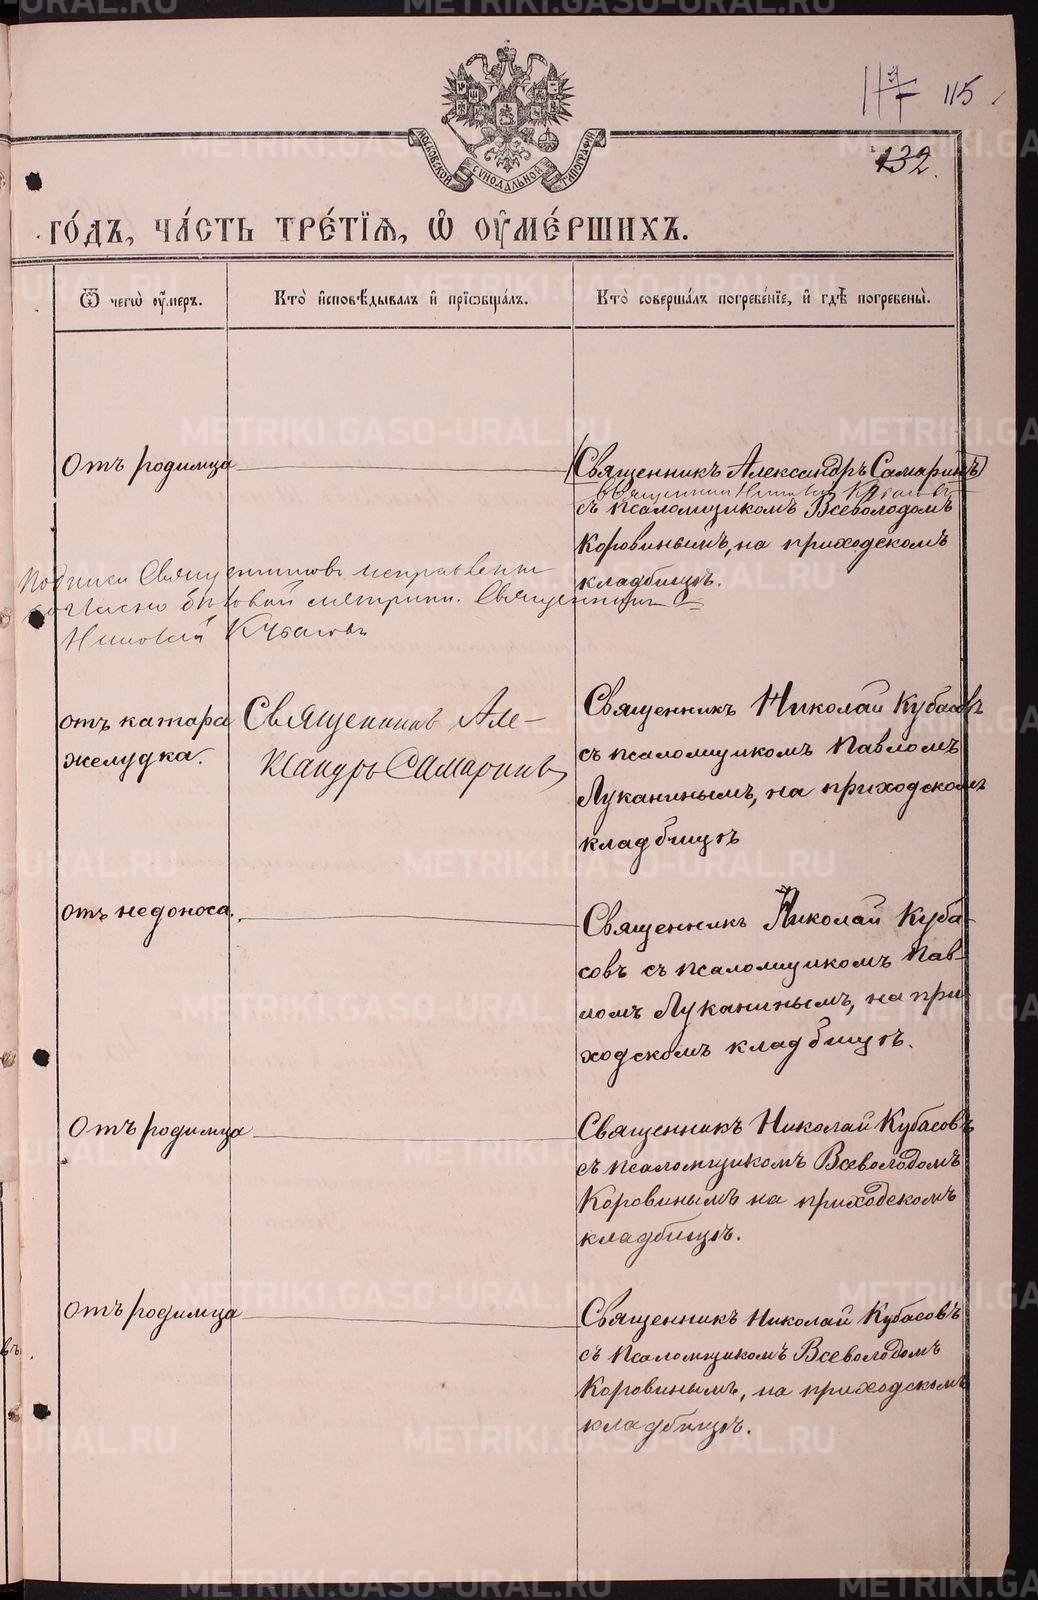 115
132.
МОСКОВСКОЙ СѴНОДАЛЬНОЙ ТИПОГРАФІИ
го́дъ, ча́сть тре́тїѧ, ѡ҆ ᲂу҆ме́ршихъ.
Ѿ чегѡ̀ ᲂу҆́меръ.
Кто̀ и҆сповѣ́дывалъ и҆ прїѡбща́лъ.
Кто̀ соверша́лъ погребе́нїе, и҆ гдѣ̀ погребены̀.
Отъ родимца
(Священникъ Александръ Самаринъ)
Священникъ Николай Кубасовъ
съ псаломщикомъ Всеволодомъ
Коровинымъ, на приходскомъ
кладбищѣ.
Подписи Священниковъ исправлены
согласно бытовой метрики. Священникъ
Николай Кубасовъ
отъ катара
желудка.
Священникъ Але-
ксандръ Самаринъ
Священникъ Николай Кубасовъ
съ псаломщикомъ Павломъ
Луканинымъ, на приходскомъ
кладбищѣ
отъ недоноса.
Священникъ Николай Куба-
совъ съ псаломщикомъ Пав-
ломъ Луканинымъ, на при-
ходскомъ кладбищѣ.
Отъ родимца
Священникъ Николай Кубасовъ
съ псаломщикомъ Всеволодомъ
Коровинымъ на приходскомъ
кладбищѣ.
Отъ родимца
Священникъ Николай Кубасовъ
съ Псаломщикомъ Всеволодомъ
Коровинымъ, на приходскомъ
кладбищѣ.
METRIKI.GASO-URAL.RU